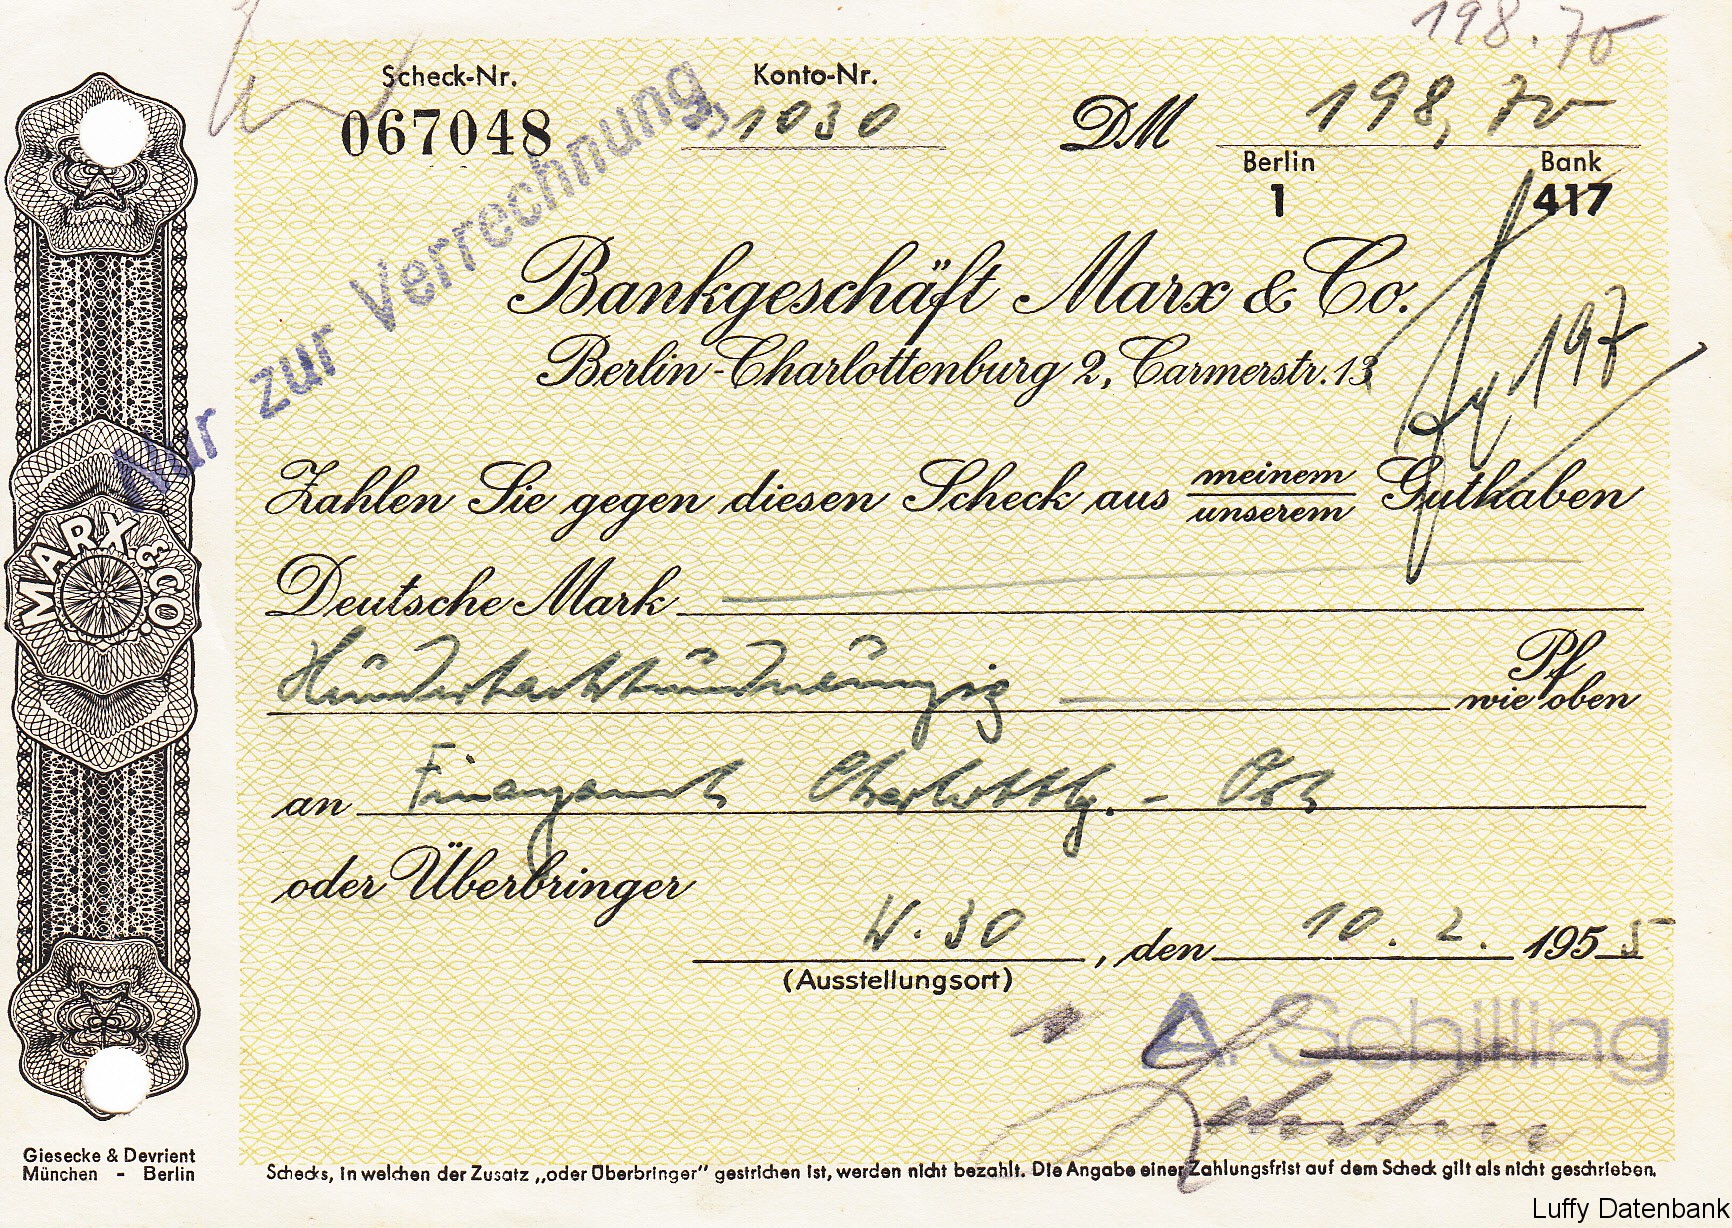 198.70
Scheck-Nr. Konto-Nr.
067048 1030 DM 198,70
Berlin Bank
1 417
Nur zur Verrechnung
Bankgeschäft Marx & Co.
Berlin-Charlottenburg 2, Carmerstr. 13
197
Zahlen Sie gegen diesen Scheck aus meinem Guthaben
unserem
Deutsche Mark
MARX & CO.
Hundertachtundneunzig Pf wie oben
an Finanzamt Charlottbg. - Ost
oder Überbringer
W. 30, den 10. 2. 1955
(Ausstellungsort)
A. Schilling
Giesecke & Devrient
München - Berlin
Schecks, in welchen der Zusatz „oder Überbringer" gestrichen ist, werden nicht bezahlt. Die Angabe einer Zahlungsfrist auf dem Scheck gilt als nicht geschrieben.
Luffy Datenbank